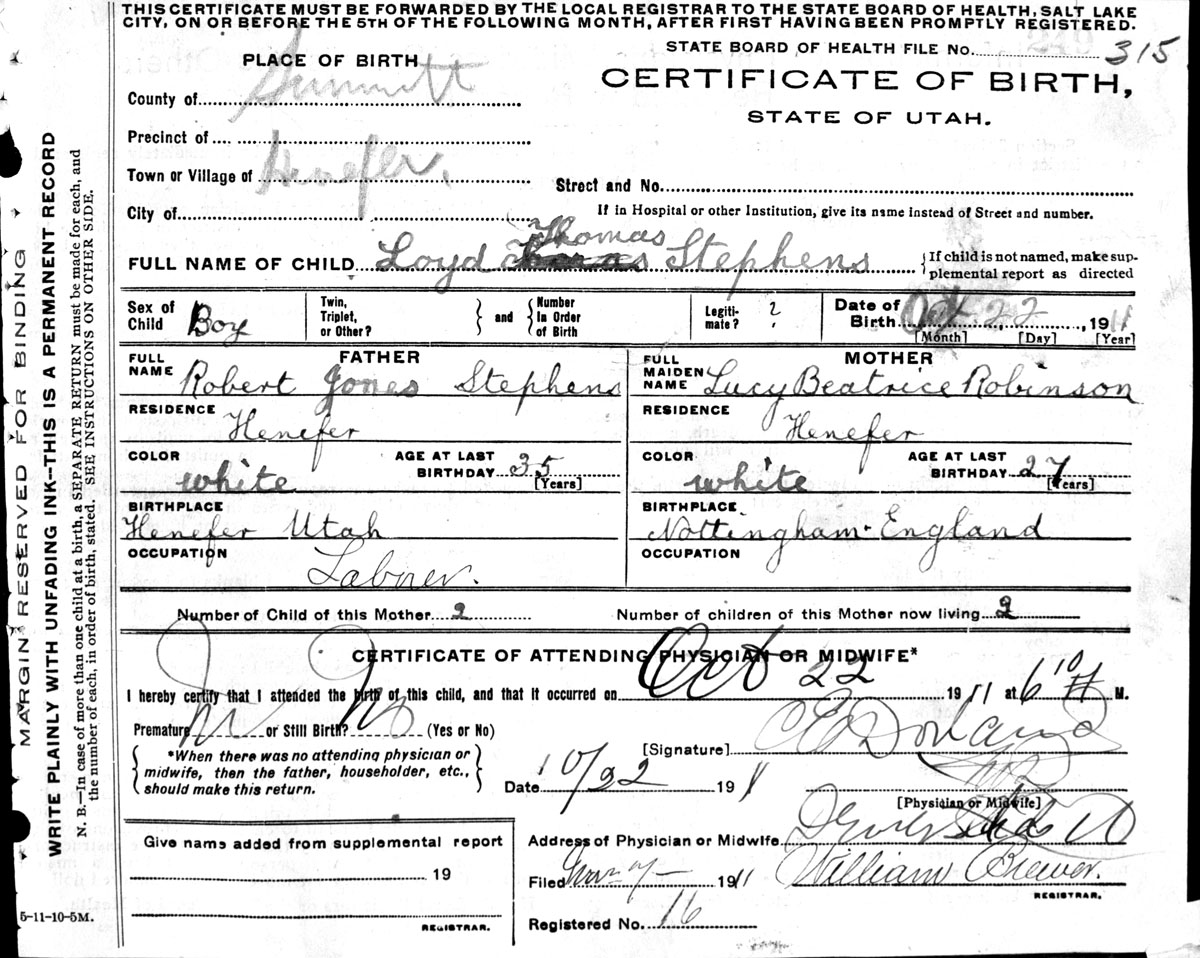 THIS CERTIFICATE MUST BE FORWARDED BY THE LOCAL REGISTRAR TO THE STATE BOARD OF HEALTH, SALT LAKE
CITY, ON OR BEFORE THE 5TH OF THE FOLLOWING MONTH, AFTER FIRST HAVING BEEN PROMPTLY REGISTERED.
STATE BOARD OF HEALTH FILE No. 315
PLACE OF BIRTH
CERTIFICATE OF BIRTH,
STATE OF UTAH.
County of Summitt
Precinct of
Town or Village of Henefer.
Street and No.
City of
If in Hospital or other Institution, give its name instead of Street and number.
Thomas
FULL NAME OF CHILD Loyd Stephens
{If child is not named, make sup-
plemental report as directed
Sex of Child Boy
Twin, Triplet, or Other? } and { Number In Order of Birth
Legiti-mate? ?
Date of Birth Oct 22, 1911
[Month] [Day] [Year]
FATHER
FULL NAME Robert Jones Stephens
RESIDENCE
Henefer
COLOR white
AGE AT LAST BIRTHDAY 35
[Years]
BIRTHPLACE
Henefer Utah
OCCUPATION
Laborer.
MOTHER
FULL MAIDEN NAME Lucy Beatrice Robinson
RESIDENCE
Henefer
COLOR white
AGE AT LAST BIRTHDAY 27
[Years]
BIRTHPLACE
Nottingham-England
OCCUPATION
Number of Child of this Mother 2
Number of children of this Mother now living 2
CERTIFICATE OF ATTENDING PHYSICIAN OR MIDWIFE*
I hereby certify that I attended the birth of this child, and that it occurred on Oct 22 1911 at 6 10 M.
Premature No or Still Birth? No (Yes or No)
{ *When there was no attending physician or
midwife, then the father, householder, etc.,
should make this return. }
[Signature]
Date 10/22 1911
[Physician or Midwife]
Address of Physician or Midwife
Give name added from supplemental report
19
REGISTRAR.
Filed 1911
William Brewer.
REGISTRAR.
Registered No. 16
5-11-10-5M.
MARGIN RESERVED FOR BINDING
WRITE PLAINLY WITH UNFADING INK—THIS IS A PERMANENT RECORD
N. B.—In case of more than one child at a birth, a SEPARATE RETURN must be made for each, and
the number of each, in order of birth, stated. SEE INSTRUCTIONS ON OTHER SIDE.